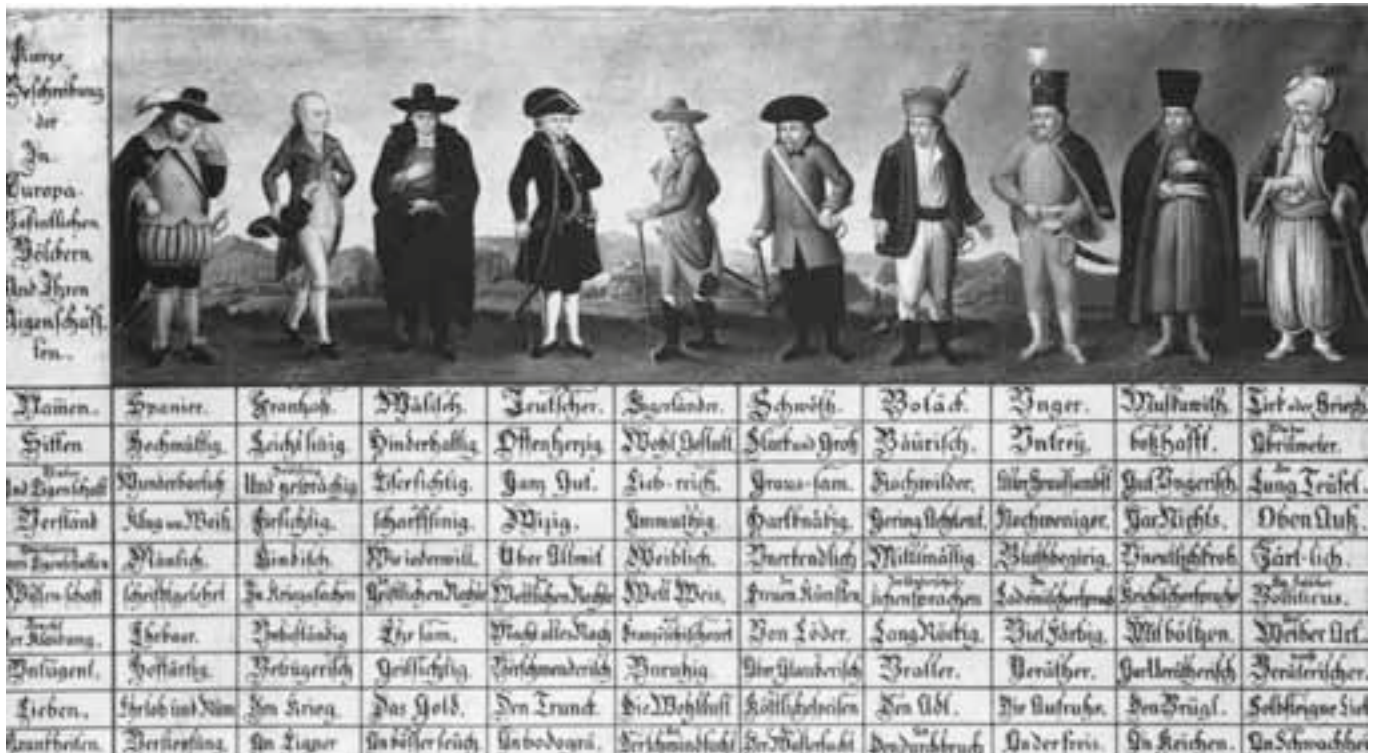 Kurze
Beschreibung
der
In
Europa
Befintlichen
Völckern
Und Ihren
Aigenschaff
ten.
Namen. Spanier. Frantzoß. Wälisch. Teutscher. Engerländer. Schwöth. Boläck. Vnger. Muskawith. Tirk oder Griech.
Sitten Hochmüttig. Leichtsinig Hinderhaltig Offenherzig. Wohl Gestalt Starck und Groß Bäurisch. Vntrey. boßhafft.
Und Eigenschaft Wunderbarlich Und gesprächig Eifersichtig. Ganz Gut. Lieb-reich. Graus-sam. Nochwilder. Aller Graussambst Gut Vngerisch. Lung Teüfel.
Verstand Klug und Weiß. Firsichtig. scharffsinig. Wizig. Ammuthig. Hartknäbig. Gering Achtent. Nochweniger. Gar Nichts. Oben Auß.
Mänlich. Kindisch. Wie iederwill. Über Allmit Weiblich. Vnerkendlich Mittlmässig. Bluthbegirig. Vnentlichkrob. Zärt-lich.
Schrifftgelehrt In Kriegssachen Geistlichen Rechte Weltlichen Rechte Welt Weis. Freuen Künsten Bolliticus.
der Klaidung. Ehrbaar. Vnbeständig Ehrsam. Macht alles Nach Französischeart Von Löder. Lang Röckig. Viel Färbig. Mit böltzen. Weiber Art.
Vntugent. Hoffärtig. Betrügerisch Geillsichtig. Verschwenderisch Vnruhig. Aber Glauberisch Braller. Veräther. Gar Verätherisch Veräterischer.
Lieben. Ehrlob und Rüm Den Krieg. Das Gold. Den Trunck. Die Wohllust Köstlichespeisen Den Adl. Die Aufruhe. Den Brügl. Selbsteigne Lieb
Krankheiten. Verstopfung. An Eigner An bösser seüch An bodogra. Der schwindsucht Der Wassersucht Den durchbruch An der freis. An Keichen. An Schwachheit